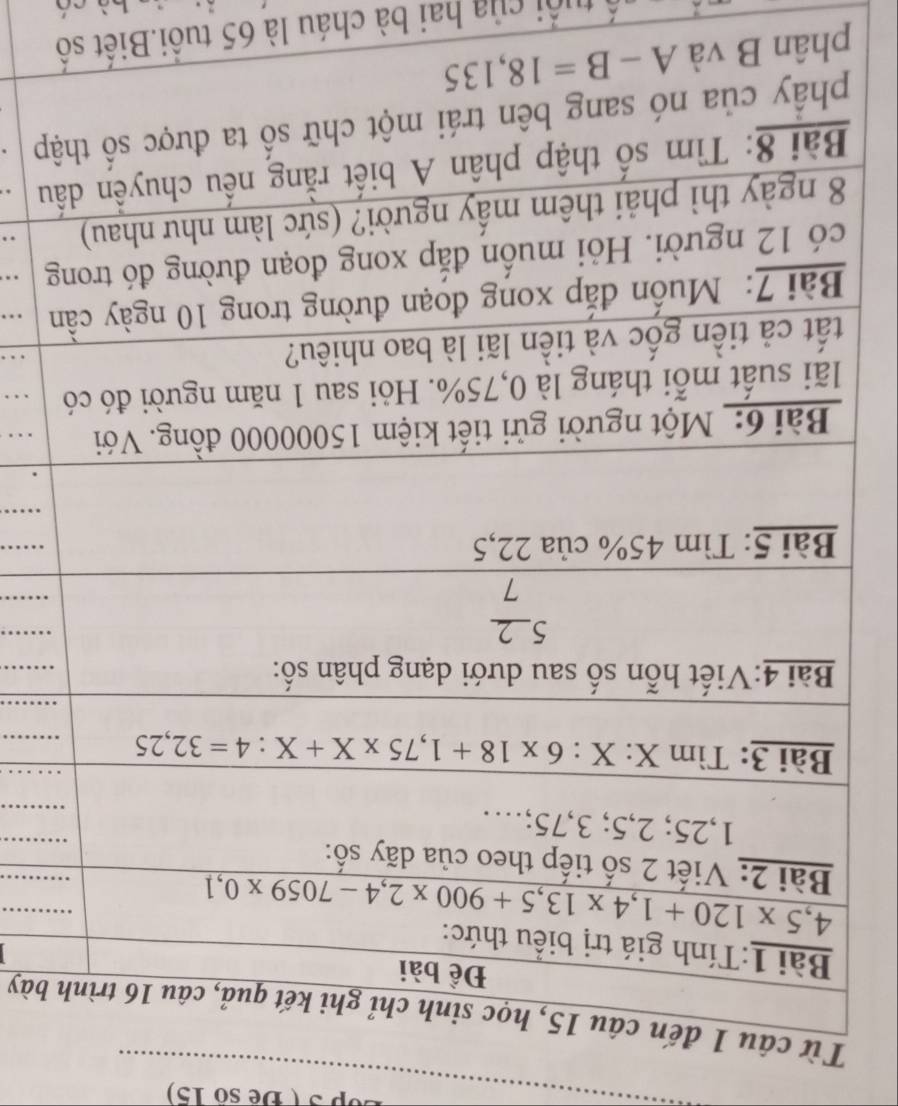 ( Đề số 15)
Từ câu 1 đến câu 15, học sinh chỉ ghi kết quả, câu 16 trình bày
Đề bài
Bài 1:Tính giá trị biểu thức:
4,5 x 120 + 1,4 x 13,5 + 900 x 2,4 – 7059 x 0,1
Bài 2: Viết 2 số tiếp theo của dãy số:
1,25; 2,5; 3,75;….
Bài 3: Tìm X: X : 6 x 18 + 1,75 x X + X : 4 = 32,25
Bài 4:Viết hỗn số sau dưới dạng phân số:
5 2
7
Bài 5: Tìm 45% của 22,5
Bài 6: Một người gửi tiết kiệm 15000000 đồng. Với
lãi suất mỗi tháng là 0,75%. Hỏi sau 1 năm người đó có
tất cả tiền gốc và tiền lãi là bao nhiêu?
Bài 7: Muốn đắp xong đoạn đường trong 10 ngày cần
có 12 người. Hỏi muốn đắp xong đoạn đường đó trong
8 ngày thì phải thêm mấy người? (sức làm như nhau)
Bài 8: Tìm số thập phân A biết rằng nếu chuyển dấu
phẩy của nó sang bên trái một chữ số ta được số thập
phân B và A – B = 18,135
tuổi của hai bà cháu là 65 tuổi.Biết số